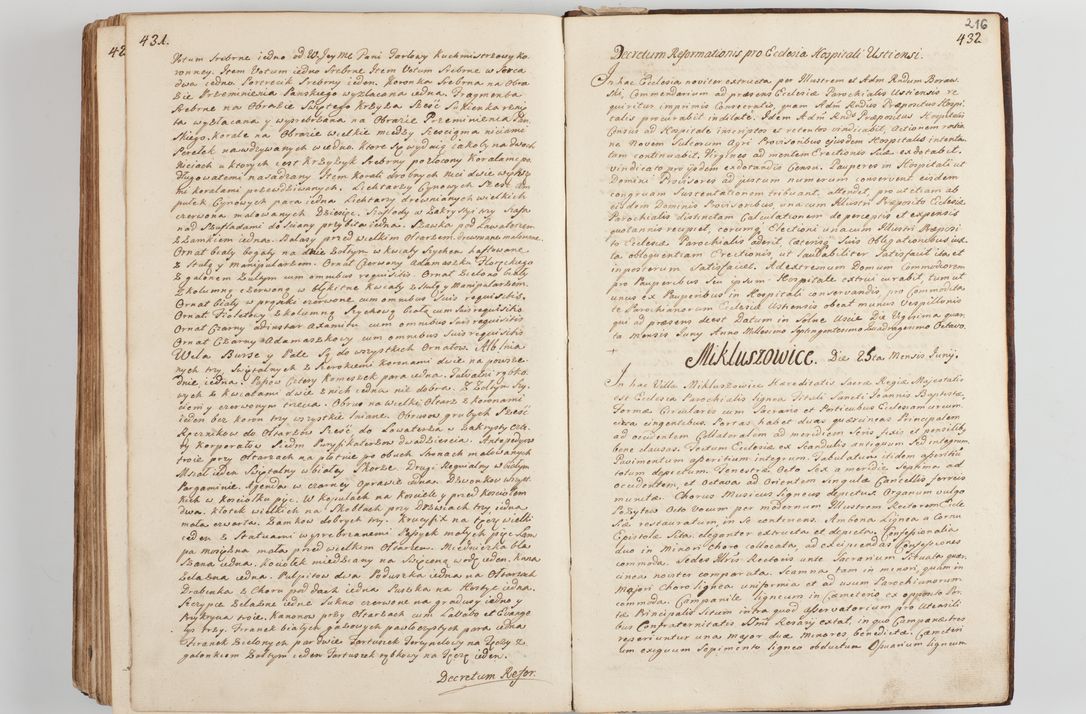 431.
Votum srebrne iedno od W. Jey Mć Pani Tarłowy Kuchmistrzowy Ko
ronney. Item Votum iedno srebrne Item Votum srebrne w serca
dwa iedno. Pierscieik srebrny ieden. Koronka srebrna na Obra
zie Przemienienia Panskiego wyzłacana iedna. Fragmenta
srebrne na Obrazie Swiętego Krzyża sześć
ta wyzłacana y wysrebrzana na Obrazie Przemienienia Pan
skiego. korale na Obrazie wielkie między sześcią niciami
Perełek nawdziewanych w iedno. Ktore się wydaią iakoby na dwoch
niciach u ktorych iest Krzyżyk srebrny pozłocony Koralami po
długowatemi nasadzany Item korali drobnych nici dwie
mi koralami przewdziwanych. Lichtarzy Cynowych sześć. Am
pułek Cynowych para iedna Lichtarzy drewnianych wielkich
czerwono malowanych dziesięc. Szuflody w Zakrystyi trzy Szafa
nad Szufladami do sciany przybita iedna. Szawka pod Lawaterzem
z Zamkiem iedna. Balasy przed wielkim Ołtarzem drewniane malowane
Ornat biały bogaty na dnie żołtym w kwiaty Szychem haftowany
z Stułą y Manipularzem. Ornat Czerwony Adamaszku Floręckiego
z galonem żołtym cum omnibus requisitis. Ornat Zielono biały
z kolumną czerwoną w błękitne kwiaty z stułą y Manipularzem.
Ornat biały w prążki czerwone cum omnibus suis requisitis.
Ornat Fioletowy z kolumną Szychową białą cum suis requisitis
Ornat Czarny adinstar axamitu cum omnibus suis requisitis
Ornat Czarny Adamaszkowy cum omnibus suis requisitis
Wela Burse y Pale są do wszystkich Ornatow. Alb lnia
nych trzy. swiątalnych z szerokiemi koronami dwie na powsze
dnie iedna. Pasow cztery Komeszek para iedna. Tuwalni rąbko
wych z kwiatami dwie z nich iedna nie dobra. z żołtym Szy
chem y czerwonym trzecia. Obrus na wielki Ołtarz z koronami
ieden bez koron trzy wszystkie lniane. Obrusow grubych sześć
Ręcznikow do Ołtarzow sześć do Lawaterza w Zakrystyi czte
ry Korporałow siedm Puryfikaterzow dwadziescia. Antepedyow
troie przy Ołtarzach na płotnie po obuch stronach malowanych
Mszał ieden Swiątalny w białey skorze. Drugi Requialny w białym
Pargaminie. Agenda w czarney Oprawie iedna. Dzwonkow wszyst
kich w kosciołku pięc. W Kopułach na kosciele y przed kosciołem
dwa. kłotek wielkich na Skoblach przy Drzwiach trzy iedna
mała czwarta. Zamkow dobrych trzy. Krucyfix na Tęczy wielki
ieden z Statuami wysrebrzanemi Passyek małych pięc Lam
pa mosiężna mała przed wielkim Ołtarzem. Miedniczka bla
szana iedna. kociołek miedziany na swięconą wodę ieden. kuna
żelazna iedna. Pulpitow dwa Poduszka iedna na Ołtarzach
Drabinka z Choru pod dach iedna Puszka na Hostye iedna.
Szczypce żelazne iedne Sukno czerwone na gradusy iedno y
Przykrycia troie. Kanonow przy Ołtarzach cum Lavabo et Evange
lys trzy. Firanek białych gazowych pawłoczystych para iedna
Firanek Zielonych par dwie Fartuszek Torzynelowy na Tęczy z
galonkiem żołtym ieden Fartuszek rąbkowy na Tęczę ieden.
Decretum Refor.
216
432
Decretum Reformationis pro Ecclesia Hospitali Ustiensi.
In hac Ecclesia noviter extructa per Illustrem et Adm Rndum Boraw
ski, Commendarium ad præsens Ecclesiæ Parochialis Ustiensis re
quiritur imprimis Consecratio, quam Adm Rndus Præpositus Hospi
talis procurabit indilate. Idem Adm Rnds Præpositus Hospitalis
Census ad Hospitale inscriptos et retentos vindicabit, actionem ratio
ne Novem Sulcorum Agri Provisoribus ejusdem Hospitalis intenta
tam continuabit. Virgines ad mentem Erectionis sub
vindicato pro iisdem exdotandis Censu. Pauperes in Hospitali ut
Domini Provisores ad justum numerum conservent, eisdem
congruam sustentationem tribuant, attendet, prout etiam ab
eisdem Dominis Provisoribus, una cum Illustri Præposito Ecclesiæ
Parochialis distinctam Calculationem de perceptis et expensis
quotannis recipiet, eorumq Electioni una cum Illustri Præposi
to Ecclesiæ Parochialis aderit, cæterisq suis Obligationibus jux
ta obloquentiam Erectionis, ut laudabiliter satisfacit ita et
inposterum satisfaciet. Ad extremum Domum Commodiorem
pro Pauperibus seu ipsum Hospitale extrui curabit, tum ut
unus ex Pauperibus in Hospitali conservandis, pro Commodita
te Parochianorum Ecclesiæ Ustiensis obeat munus Vespillonis
qui ad præsens deest Datum in Solne Uscie Die Vigesima quar
ta Mensis Juny Anno Millesimo Septingentesimo Quadragesimo Octavo.
+
Mikluszowice. Die 25ta Mensis Junij.
In hac Villa Mikluszowice Hæreditatis Sacræ Regiæ Majestatis
est Ecclesia Parochialis lignea Tituli Sancti Joannis Baptistæ,
Formæ Circularis cum Sacrario et Porticubus Ecclesiam versum
circa cingentibus. Portas habet duas quarum Principalem
ad occidentem Collateralem ad meridiem seris fixis et pensilibus
bene clausas. Tectum Ecclesiæ ex Scandulis antiquum sed integrum.
Pavimentum asseritium integrum. Tabulatum itidem asseritiū
totum depictum. Fenestræ Octo Sex a meridie Septima ad
occidentem, et Octava ad Orientem singulæ Cancellis ferreis
munitæ. Chorus Musicus ligneus depictus. Organum vulgo
Pozytyw Octo Vocum per modernum Illustrem Rectorem Eccle
siæ restauratum, in se continens. Ambona lignea a Cornu
Epistolæ sita eleganter extructa et depicta. Confessionalia
duo in Minori Choro collocata, ad excipiendas Confessiones
commoda. Sedes Illris Rectoris una Sacrarium situata quæ
unea noviter comparata. Scamna tam in minori, quam in
Majori Choro lignea uniformia et ad usum Parochianorum
commoda. Campanile ligneum in Cæmeterio ex opposito Por
tæ Principalis situm intra quod asservatorium pro Utensili
bus Confraternitatis Ssmi Rosary extat, in quo Campanæ tres
reperiuntur una major duæ minores benedictæ. Cæmeteri
um exiguum Sepimento ligneo obductum Ossuarium ligneum